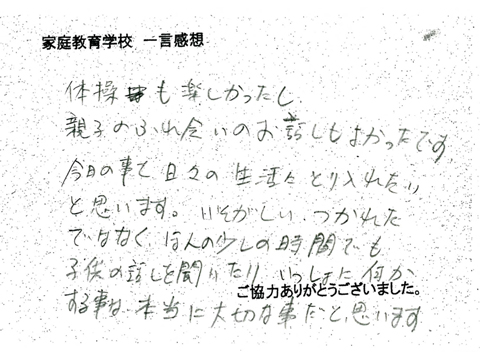 家庭教育学校 一言感想
体操も楽しかったし
親子のふれ合いのお話しもよかったです
今日の事を日々の生活にとり入れたい
と思います。いそがしい、つかれた
ではなく、ほんの少しの時間でも
子供の話しを聞いたり、いっしょに何か
する事は、本当に大切な事だと思います
ご協力ありがとうございました。